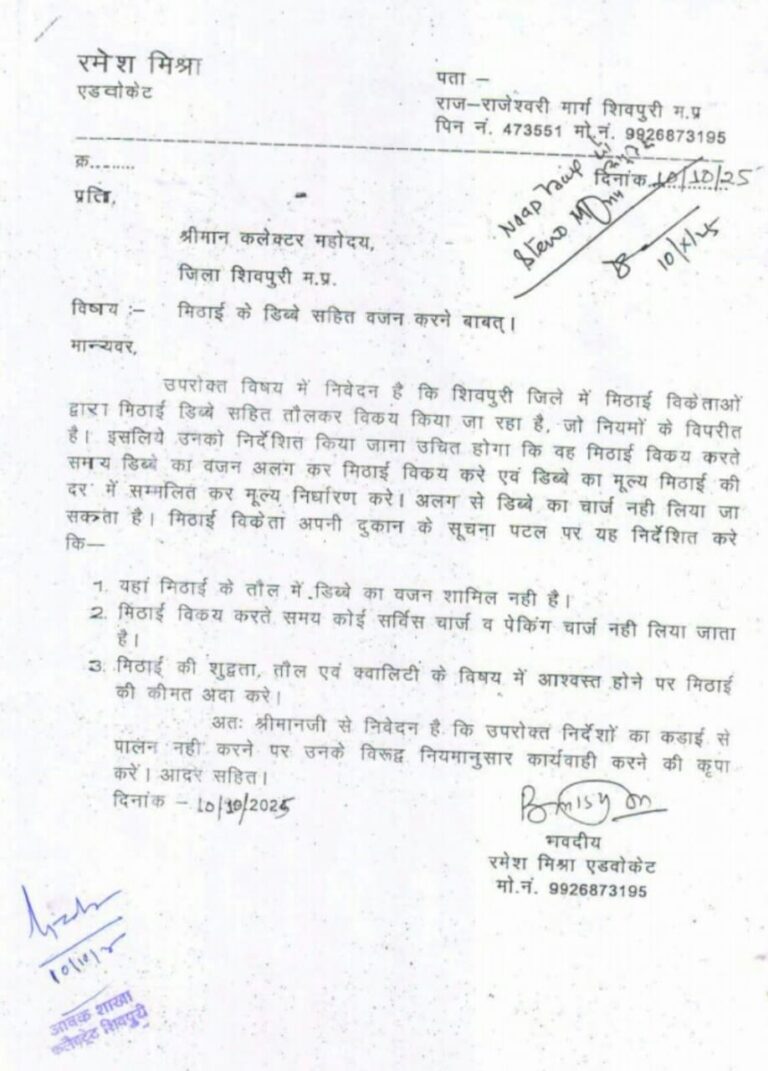 रमेश मिश्रा
एडवोकेट
पता –
राज–राजेश्वरी मार्ग शिवपुरी म.प्र
पिन नं. 473551 मो.नं. 9926873195
क्र.........
दिनांक 10/10/25
प्रति,
Naap Taup
Steno
10/X/25
श्रीमान कलेक्टर महोदय,
जिला शिवपुरी म.प्र.
विषय :– मिठाई के डिब्बे सहित वजन करने बाबत्।
मान्यवर,
उपरोक्त विषय में निवेदन है कि शिवपुरी जिले में मिठाई विकेताओं
द्वारा मिठाई डिब्बे सहित तौलकर विकय किया जा रहा है, जो नियमों के विपरीत
है। इसलिये उनको निर्देशित किया जाना उचित होगा कि वह मिठाई विकय करते
समय डिब्बे का वजन अलग कर मिठाई विकय करे एवं डिब्बे का मूल्य मिठाई की
दर में सम्मलित कर मूल्य निर्धारण करे। अलग से डिब्बे का चार्ज नही लिया जा
सकता है। मिठाई विकेता अपनी दुकान के सूचना पटल पर यह निर्देशित करे
कि—
1. यहां मिठाई के तौल में डिब्बे का वजन शामिल नही है।
2. मिठाई विकय करते समय कोई सर्विस चार्ज व पेकिंग चार्ज नही लिया जाता
है।
3. मिठाई की शुद्वता, तौल एवं क्वालिटी के विषय में आश्वस्त होने पर मिठाई
की कीमत अदा करे।
अतः श्रीमानजी से निवेदन है कि उपरोक्त निर्देशों का कडाई से
पालन नही करने पर उनके विरूद्व नियमानुसार कार्यवाही करने की कृपा
करें। आदर सहित।
दिनांक – 10/10/2025
भवदीय
रमेश मिश्रा एडवोकेट
मो.नं. 9926873195
10/10/25
आवक शाखा
कलैक्ट्रेट शिवपुरी